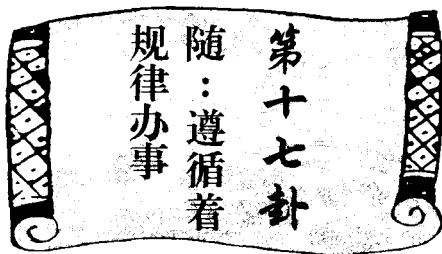 第十七卦
随：遵循着
规律办事